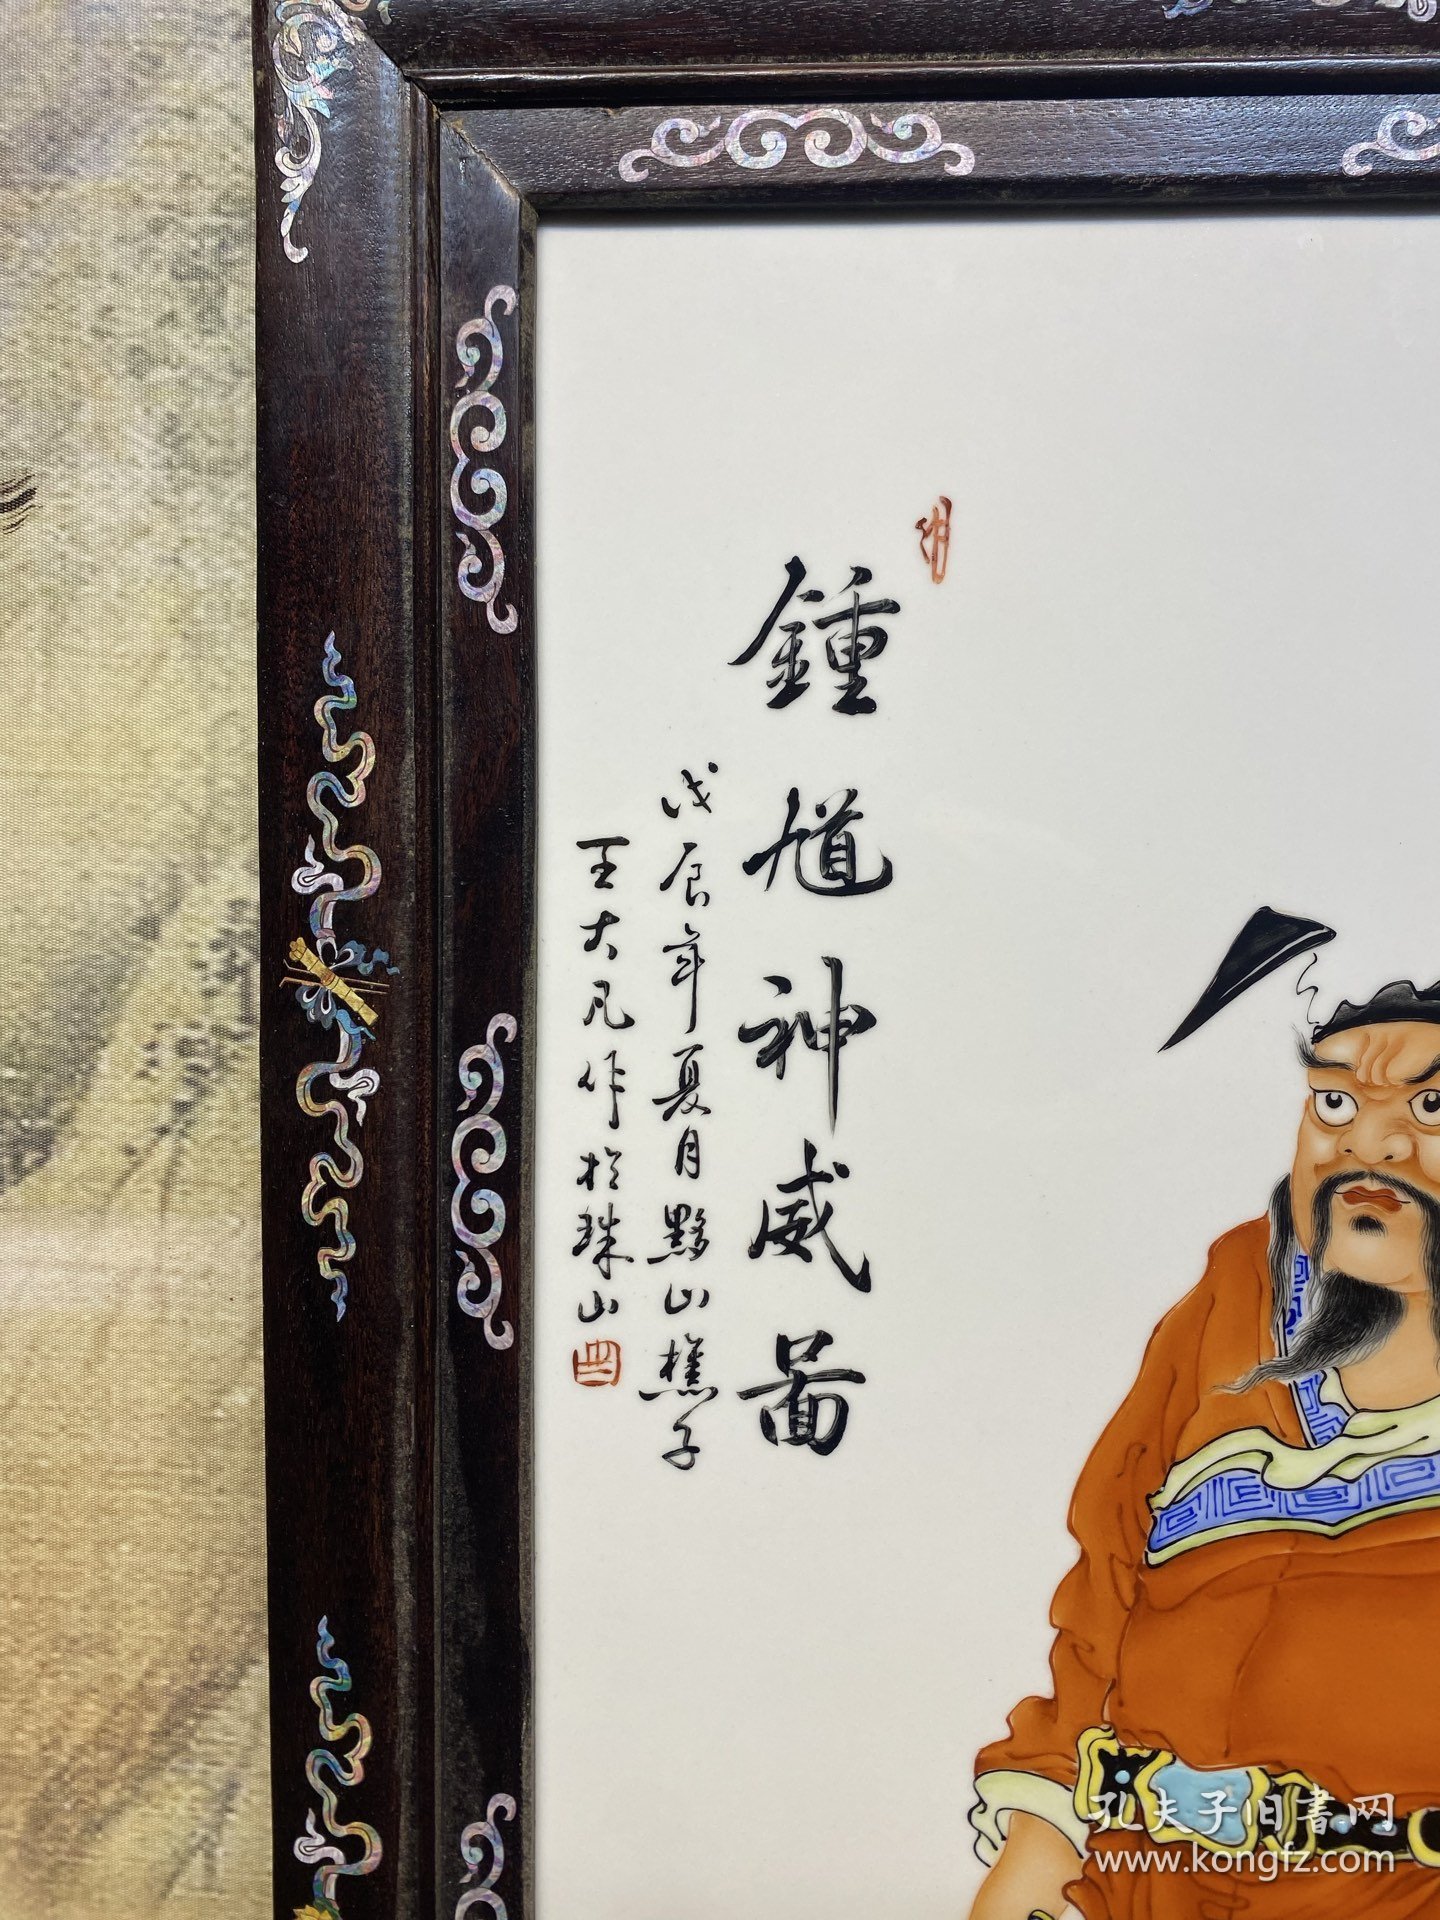 鍾馗神威圖
戊辰年夏月黟山樵子
王大凡作於珠山
孔夫子旧書网
www.kongfz.com